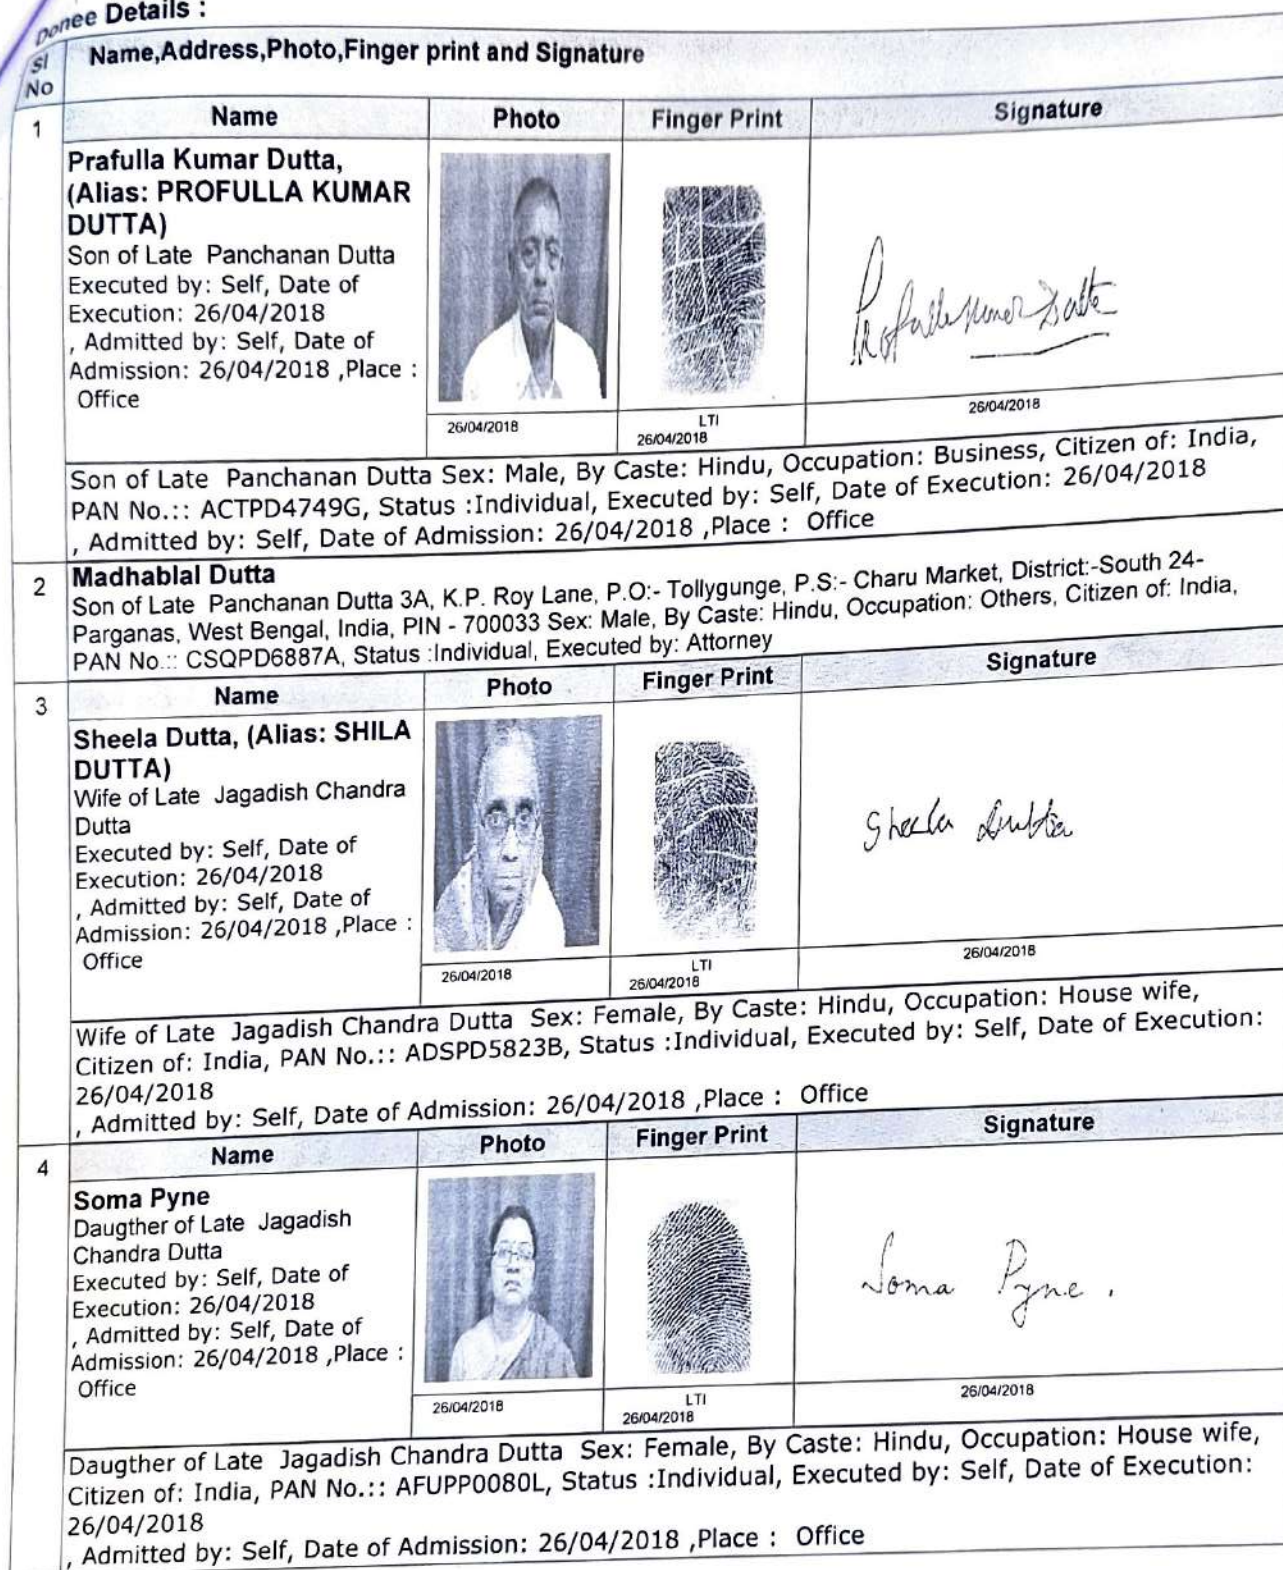 Donee Details :
Sl No
Name,Address,Photo,Finger print and Signature
1
Name
Photo
Finger Print
Signature
Prafulla Kumar Dutta,
(Alias: PROFULLA KUMAR
DUTTA)
Son of Late Panchanan Dutta
Executed by: Self, Date of
Execution: 26/04/2018
, Admitted by: Self, Date of
Admission: 26/04/2018 ,Place :
Office
Profulla Kumar Dutta
26/04/2018
LTI
26/04/2018
26/04/2018
Son of Late Panchanan Dutta Sex: Male, By Caste: Hindu, Occupation: Business, Citizen of: India,
PAN No.:: ACTPD4749G, Status :Individual, Executed by: Self, Date of Execution: 26/04/2018
, Admitted by: Self, Date of Admission: 26/04/2018 ,Place : Office
2
Madhablal Dutta
Son of Late Panchanan Dutta 3A, K.P. Roy Lane, P.O:- Tollygunge, P.S:- Charu Market, District:-South 24-
Parganas, West Bengal, India, PIN - 700033 Sex: Male, By Caste: Hindu, Occupation: Others, Citizen of: India,
PAN No.:: CSQPD6887A, Status :Individual, Executed by: Attorney
3
Name
Photo
Finger Print
Signature
Sheela Dutta, (Alias: SHILA
DUTTA)
Wife of Late Jagadish Chandra
Dutta
Executed by: Self, Date of
Execution: 26/04/2018
, Admitted by: Self, Date of
Admission: 26/04/2018 ,Place :
Office
Sheela Dutta
26/04/2018
LTI
26/04/2018
26/04/2018
Wife of Late Jagadish Chandra Dutta Sex: Female, By Caste: Hindu, Occupation: House wife,
Citizen of: India, PAN No.:: ADSPD5823B, Status :Individual, Executed by: Self, Date of Execution:
26/04/2018
, Admitted by: Self, Date of Admission: 26/04/2018 ,Place : Office
4
Name
Photo
Finger Print
Signature
Soma Pyne
Daugther of Late Jagadish
Chandra Dutta
Executed by: Self, Date of
Execution: 26/04/2018
, Admitted by: Self, Date of
Admission: 26/04/2018 ,Place :
Office
Soma Pyne.
26/04/2018
LTI
26/04/2018
26/04/2018
Daugther of Late Jagadish Chandra Dutta Sex: Female, By Caste: Hindu, Occupation: House wife,
Citizen of: India, PAN No.:: AFUPP0080L, Status :Individual, Executed by: Self, Date of Execution:
26/04/2018
, Admitted by: Self, Date of Admission: 26/04/2018 ,Place : Office